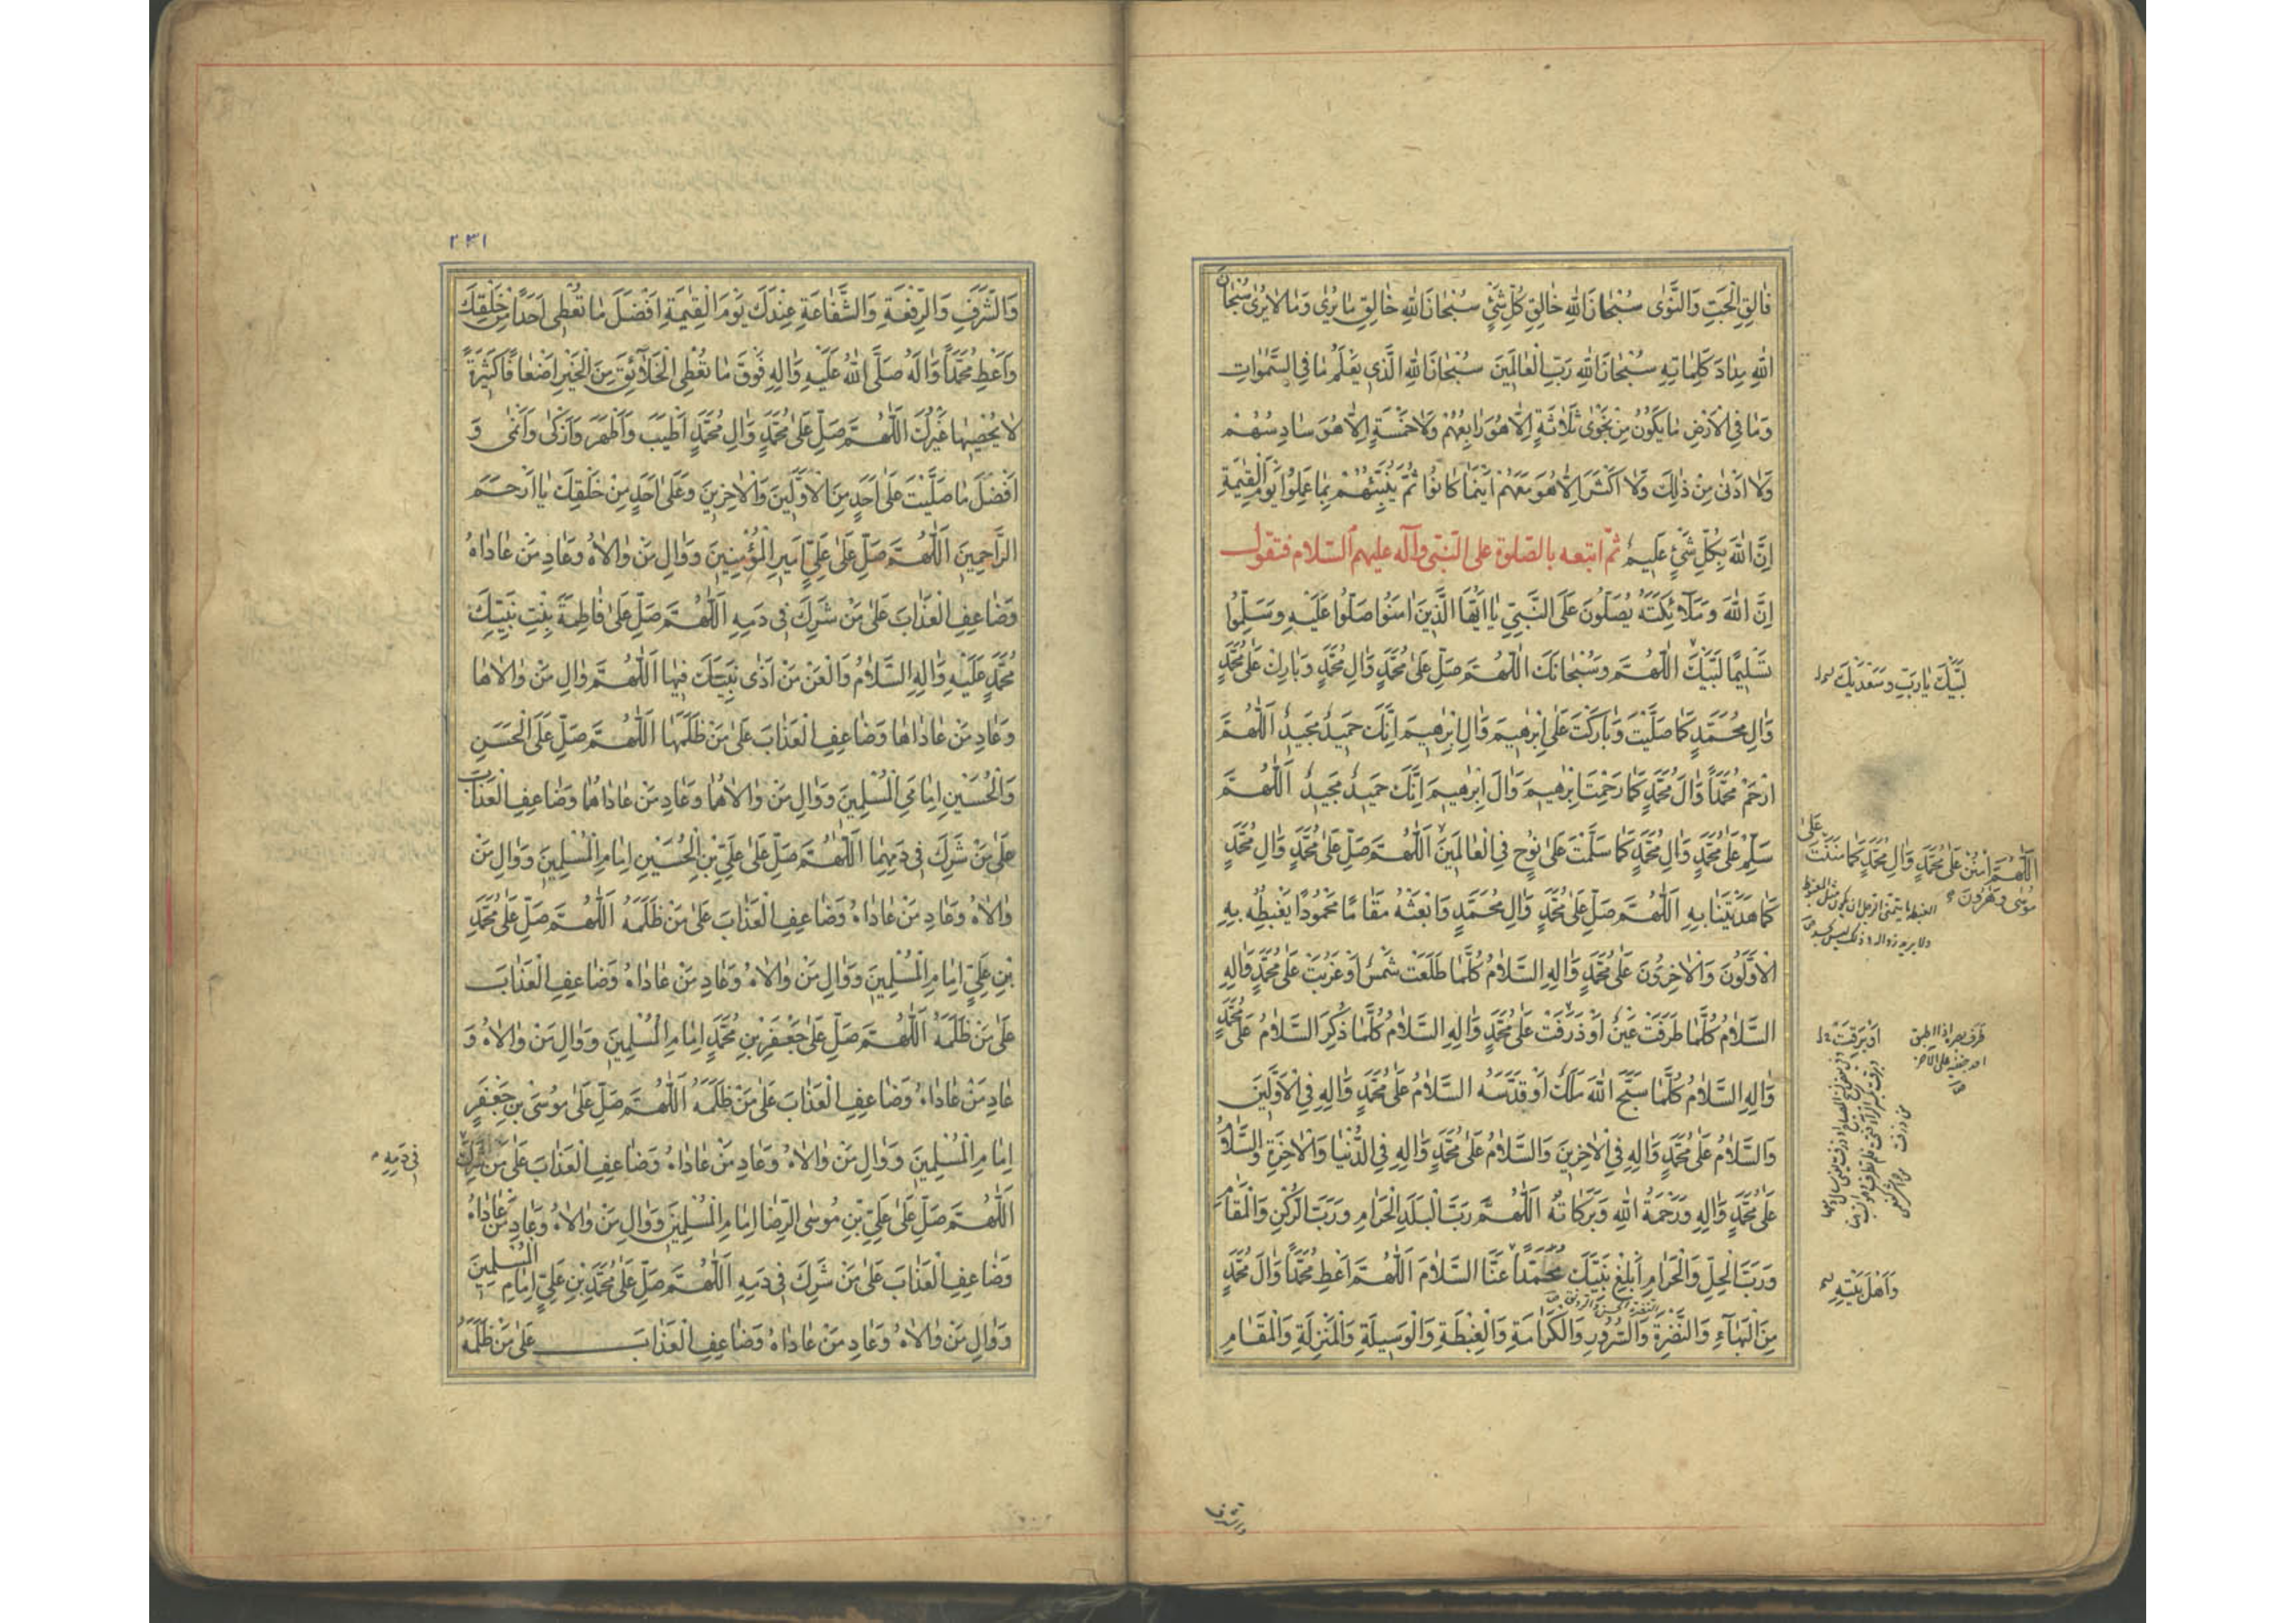 فٰالِقِ الْحَبِّ وَالنَّوٰى سُبْحٰانَ اللهِ خٰالِقِ كُلِّ شَيْءٍ سُبْحٰانَ اللهِ خٰالِقِ مٰا يُرٰى وَمٰا لٰا يُرٰى سُبْحٰانَ
اللهِ مِدٰادَ كَلِمٰاتِهِ سُبْحٰانَ اللهِ رَبِّ الْعٰالَمِينَ سُبْحٰانَ اللهِ الَّذِي يَعْلَمُ مٰا فِي السَّمٰوٰاتِ
وَمٰا فِي الْاَرْضِ مٰا يَكُونُ مِنْ نَجْوٰى ثَلٰاثَةٍ اِلّٰا هُوَ رٰابِعُهُمْ وَلٰا خَمْسَةٍ اِلّٰا هُوَ سٰادِسُهُمْ
وَلٰا اَدْنٰى مِنْ ذٰلِكَ وَلٰا اَكْثَرَ اِلّٰا هُوَ مَعَهُمْ اَيْنَمٰا كٰانُوا ثُمَّ يُنَبِّئُهُمْ بِمٰا عَمِلُوا يَوْمَ الْقِيٰمَةِ
اِنَّ اللهَ بِكُلِّ شَيْءٍ عَلِيمٌ ثم اتبعه بالصلوة على النبي وآله عليهم السلام فتقول
اِنَّ اللهَ وَمَلٰائِكَتَهُ يُصَلُّونَ عَلَى النَّبِيِّ يٰا اَيُّهَا الَّذِينَ اٰمَنُوا صَلُّوا عَلَيْهِ وَسَلِّمُوا
تَسْلِيمًا لَبَّيْكَ اللّٰهُمَّ وَسُبْحٰانَكَ اللّٰهُمَّ صَلِّ عَلٰى مُحَمَّدٍ وَاٰلِ مُحَمَّدٍ وَبٰارِكْ عَلٰى مُحَمَّدٍ
لَبَّيْكَ يٰا رَبِّ وَسَعْدَيْكَ
وَاٰلِ مُحَمَّدٍ كَمٰا صَلَّيْتَ وَبٰارَكْتَ عَلٰى اِبْرٰهِيمَ وَاٰلِ اِبْرٰهِيمَ اِنَّكَ حَمِيدٌ مَجِيدٌ اَللّٰهُمَّ
ارْحَمْ مُحَمَّدًا وَاٰلَ مُحَمَّدٍ كَمٰا رَحِمْتَ اِبْرٰهِيمَ وَاٰلَ اِبْرٰهِيمَ اِنَّكَ حَمِيدٌ مَجِيدٌ اَللّٰهُمَّ
سَلِّمْ عَلٰى مُحَمَّدٍ وَاٰلِ مُحَمَّدٍ كَمٰا سَلَّمْتَ عَلٰى نُوحٍ فِي الْعٰالَمِينَ اَللّٰهُمَّ صَلِّ عَلٰى مُحَمَّدٍ وَاٰلِ مُحَمَّدٍ
اَللّٰهُمَّ امْنُنْ عَلٰى مُحَمَّدٍ وَاٰلِ مُحَمَّدٍ كَمٰا مَنَنْتَ عَلٰى
مُوسٰى وَهٰرُونَ
كَمٰا هَدَيْتَنٰا بِهِ اَللّٰهُمَّ صَلِّ عَلٰى مُحَمَّدٍ وَاٰلِ مُحَمَّدٍ وَابْعَثْهُ مَقٰامًا مَحْمُودًا يَغْبِطُهُ بِهِ
الْاَوَّلُونَ وَالْاٰخِرُونَ عَلٰى مُحَمَّدٍ وَاٰلِهِ السَّلٰامُ كُلَّمٰا طَلَعَتْ شَمْسٌ اَوْ غَرُبَتْ عَلٰى مُحَمَّدٍ وَاٰلِهِ
السَّلٰامُ كُلَّمٰا طَرَفَتْ عَيْنٌ اَوْ ذَرَفَتْ عَلٰى مُحَمَّدٍ وَاٰلِهِ السَّلٰامُ كُلَّمٰا ذُكِرَ السَّلٰامُ عَلٰى مُحَمَّدٍ
اَوْ بَرِقَتْ
وَاٰلِهِ السَّلٰامُ كُلَّمٰا سَبَّحَ اللهَ مَلَكٌ اَوْ قَدَّسَهُ السَّلٰامُ عَلٰى مُحَمَّدٍ وَاٰلِهِ فِي الْاَوَّلِينَ
وَالسَّلٰامُ عَلٰى مُحَمَّدٍ وَاٰلِهِ فِي الْاٰخِرِينَ وَالسَّلٰامُ عَلٰى مُحَمَّدٍ وَاٰلِهِ فِي الدُّنْيٰا وَالْاٰخِرَةِ وَالسَّلٰامُ
عَلٰى مُحَمَّدٍ وَاٰلِهِ وَرَحْمَةُ اللهِ وَبَرَكٰاتُهُ اَللّٰهُمَّ رَبَّ الْبَلَدِ الْحَرٰامِ وَرَبَّ الرُّكْنِ وَالْمَقٰامِ
وَرَبَّ الْحِلِّ وَالْحَرٰامِ اَبْلِغْ نَبِيَّكَ مُحَمَّدًا عَنَّا السَّلٰامَ اَللّٰهُمَّ اَعْطِ مُحَمَّدًا وَاٰلَ مُحَمَّدٍ
وَاَهْلَ بَيْتِهِ
مِنَ الْبَهٰاءِ وَالنَّضْرَةِ وَالسُّرُورِ وَالْكَرٰامَةِ وَالْغِبْطَةِ وَالْوَسِيلَةِ وَالْمَنْزِلَةِ وَالْمَقٰامِ
والشرف
٢٣١
وَالشَّرَفِ وَالرِّفْعَةِ وَالشَّفٰاعَةِ عِنْدَكَ يَوْمَ الْقِيٰمَةِ اَفْضَلَ مٰا تُعْطِي اَحَدًا مِنْ خَلْقِكَ
وَاَعْطِ مُحَمَّدًا وَاٰلَهُ صَلَّى اللهُ عَلَيْهِ وَاٰلِهِ فَوْقَ مٰا تُعْطِي الْخَلٰائِقَ مِنَ الْخَيْرِ اَضْعٰافًا كَثِيرَةً
لٰا يُحْصِيهٰا غَيْرُكَ اَللّٰهُمَّ صَلِّ عَلٰى مُحَمَّدٍ وَاٰلِ مُحَمَّدٍ اَطْيَبَ وَاَطْهَرَ وَاَزْكٰى وَاَنْمٰى وَ
اَفْضَلَ مٰا صَلَّيْتَ عَلٰى اَحَدٍ مِنَ الْاَوَّلِينَ وَالْاٰخِرِينَ وَعَلٰى اَحَدٍ مِنْ خَلْقِكَ يٰا اَرْحَمَ
الرّٰاحِمِينَ اَللّٰهُمَّ صَلِّ عَلٰى عَلِيٍّ اَمِيرِ الْمُؤْمِنِينَ وَوٰالِ مَنْ وٰالٰاهُ وَعٰادِ مَنْ عٰادٰاهُ
وَضٰاعِفِ الْعَذٰابَ عَلٰى مَنْ شَرِكَ فِي دَمِهِ اَللّٰهُمَّ صَلِّ عَلٰى فٰاطِمَةَ بِنْتِ نَبِيِّكَ
مُحَمَّدٍ عَلَيْهِ وَاٰلِهِ السَّلٰامُ وَالْعَنْ مَنْ اٰذٰى نَبِيَّكَ فِيهٰا اَللّٰهُمَّ وٰالِ مَنْ وٰالٰاهٰا
وَعٰادِ مَنْ عٰادٰاهٰا وَضٰاعِفِ الْعَذٰابَ عَلٰى مَنْ ظَلَمَهٰا اَللّٰهُمَّ صَلِّ عَلَى الْحَسَنِ
وَالْحُسَيْنِ اِمٰامَيِ الْمُسْلِمِينَ وَوٰالِ مَنْ وٰالٰاهُمٰا وَعٰادِ مَنْ عٰادٰاهُمٰا وَضٰاعِفِ الْعَذٰابَ
عَلٰى مَنْ شَرِكَ فِي دَمِهِمٰا اَللّٰهُمَّ صَلِّ عَلٰى عَلِيِّ بْنِ الْحُسَيْنِ اِمٰامِ الْمُسْلِمِينَ وَوٰالِ مَنْ
وٰالٰاهُ وَعٰادِ مَنْ عٰادٰاهُ وَضٰاعِفِ الْعَذٰابَ عَلٰى مَنْ ظَلَمَهُ اَللّٰهُمَّ صَلِّ عَلٰى مُحَمَّدِ
بْنِ عَلِيٍّ اِمٰامِ الْمُسْلِمِينَ وَوٰالِ مَنْ وٰالٰاهُ وَعٰادِ مَنْ عٰادٰاهُ وَضٰاعِفِ الْعَذٰابَ
عَلٰى مَنْ ظَلَمَهُ اَللّٰهُمَّ صَلِّ عَلٰى جَعْفَرِ بْنِ مُحَمَّدٍ اِمٰامِ الْمُسْلِمِينَ وَوٰالِ مَنْ وٰالٰاهُ وَ
عٰادِ مَنْ عٰادٰاهُ وَضٰاعِفِ الْعَذٰابَ عَلٰى مَنْ ظَلَمَهُ اَللّٰهُمَّ صَلِّ عَلٰى مُوسَى بْنِ جَعْفَرٍ
اِمٰامِ الْمُسْلِمِينَ وَوٰالِ مَنْ وٰالٰاهُ وَعٰادِ مَنْ عٰادٰاهُ وَضٰاعِفِ الْعَذٰابَ عَلٰى مَنْ شَرِكَ
فِي دَمِهِ
اَللّٰهُمَّ صَلِّ عَلٰى عَلِيِّ بْنِ مُوسَى الرِّضٰا اِمٰامِ الْمُسْلِمِينَ وَوٰالِ مَنْ وٰالٰاهُ وَعٰادِ مَنْ عٰادٰاهُ
وَضٰاعِفِ الْعَذٰابَ عَلٰى مَنْ شَرِكَ فِي دَمِهِ اَللّٰهُمَّ صَلِّ عَلٰى مُحَمَّدِ بْنِ عَلِيٍّ اِمٰامِ الْمُسْلِمِينَ
وَوٰالِ مَنْ وٰالٰاهُ وَعٰادِ مَنْ عٰادٰاهُ وَضٰاعِفِ الْعَذٰابَ عَلٰى مَنْ ظَلَمَهُ